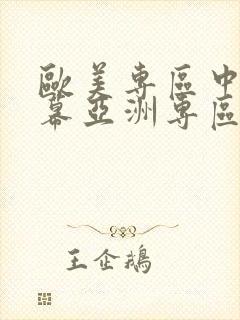 歐美專區中
幕亞洲專區
王企鵝